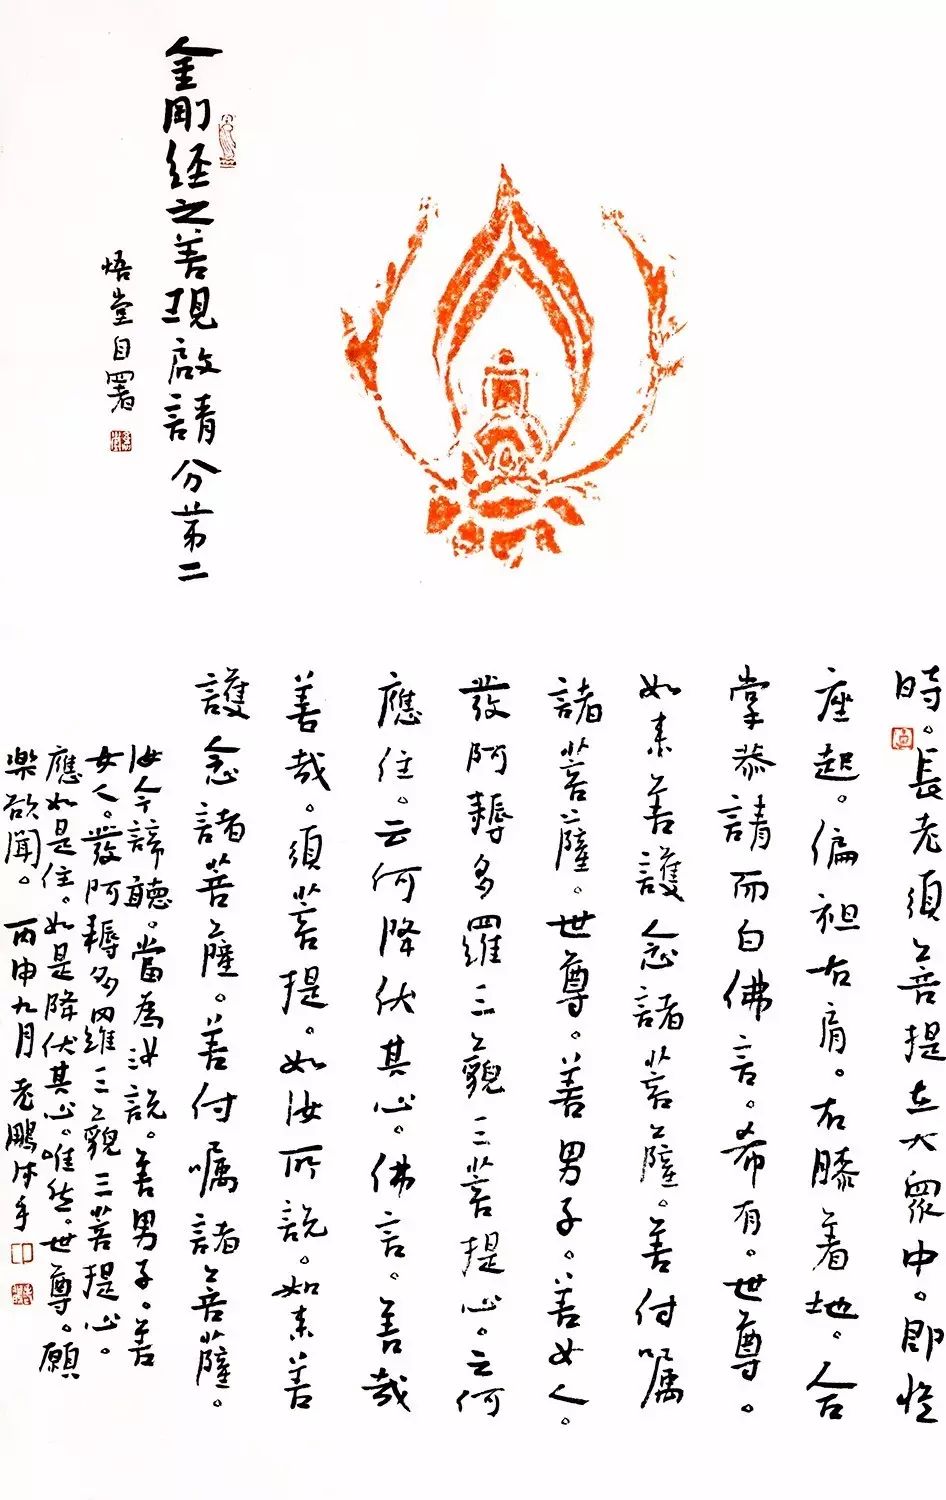 金剛经之善現啟請分第二
悟堂自署
時。長老須菩提在大眾中。即從
座起。偏袒右肩。右膝着地。合
掌恭請而白佛言。希有。世尊。
如来善護念諸菩薩。善付嘱
諸菩薩。世尊。善男子。善女人。
發阿耨多羅三藐三菩提心。云何
應住。云何降伏其心。佛言。善哉
善哉。須菩提。如汝所說。如来善
護念諸菩薩。善付嘱諸菩薩。
汝今諦聽。當為汝說。善男子。善
女人。發阿耨多羅三藐三菩提心。
應如是住。如是降伏其心。唯然。世尊。願
樂欲聞。丙申九月老鵬沐手